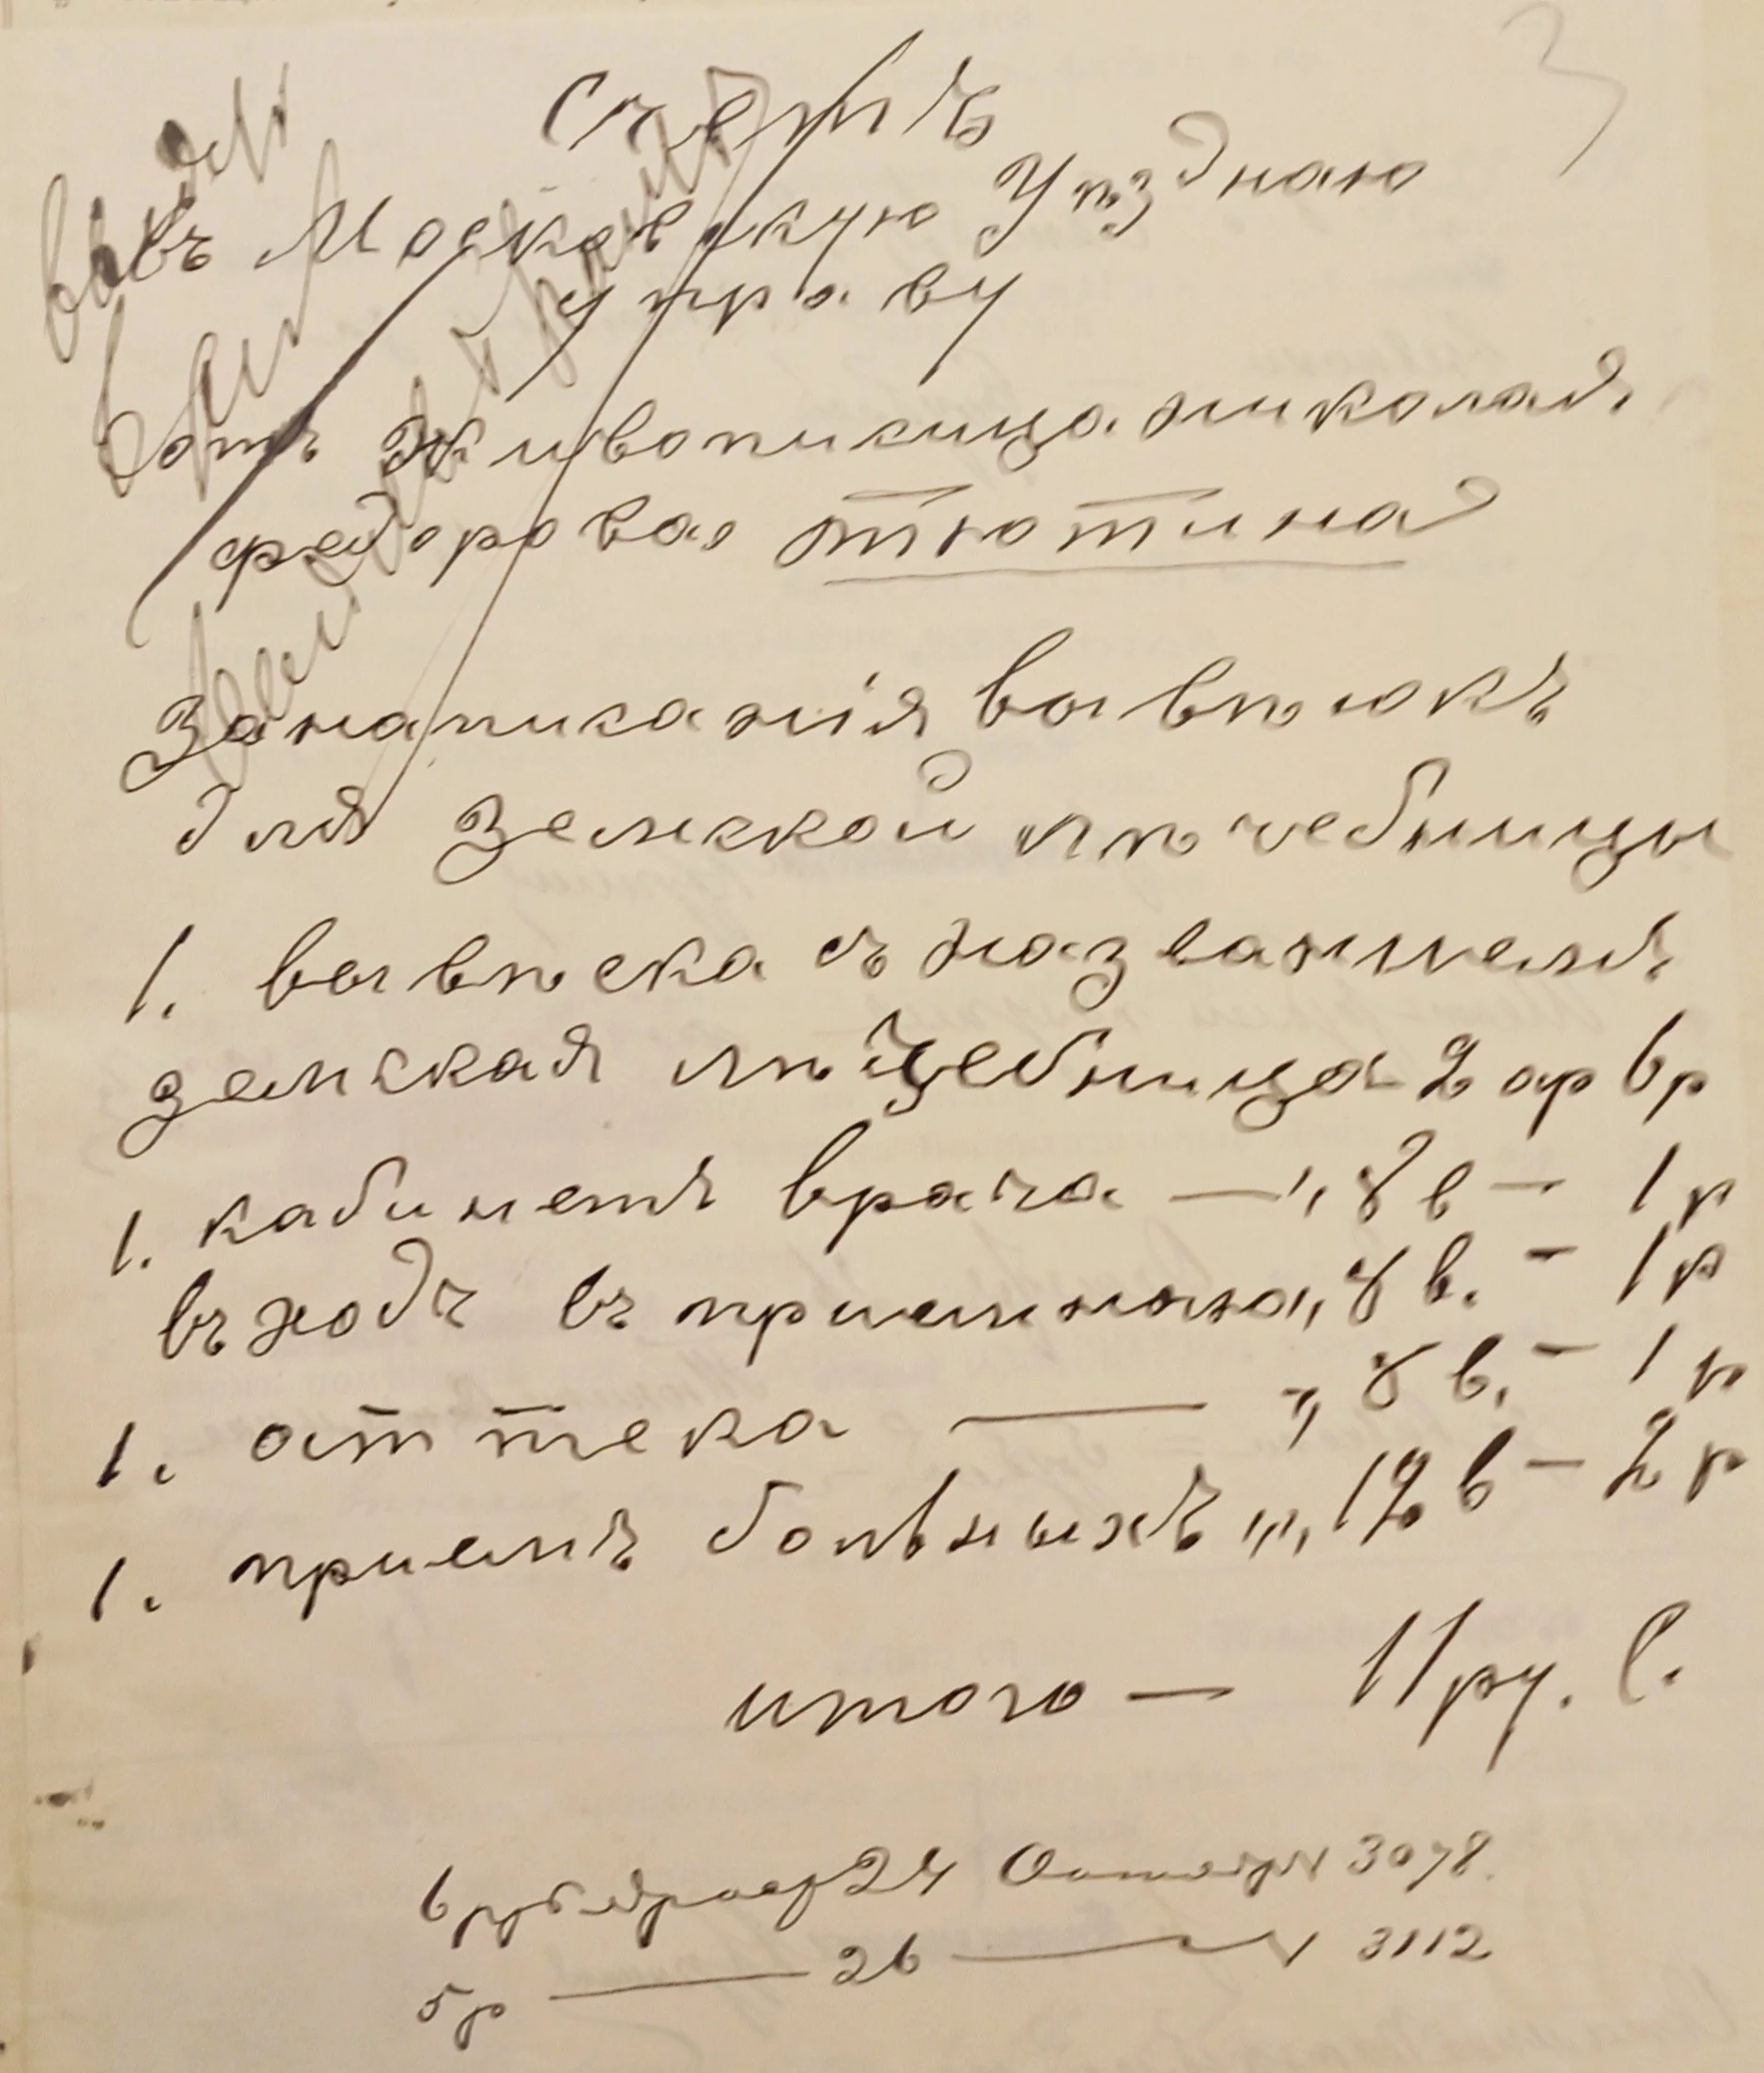 3
Счетъ
въ Московскую Уѣзднаю
управу
отъ живописица николая
федорова тютина
За написанія вывѣюкъ
для земской лѣчебницы
1. вывѣска съ названиемъ
земская лѣчебница - 2 ар 6р
1. кабинетъ врача — " 8 в — 1 р
въходъ въ приемныю " 8 в. — 1 р
1. аттека — " 8 в. — 1 р
1. приемъ больныхъ " " 12 в — 2 р
итого — 11 ру. С.
6 руб 24 Октября № 3078.
5р — 26 — № 3112